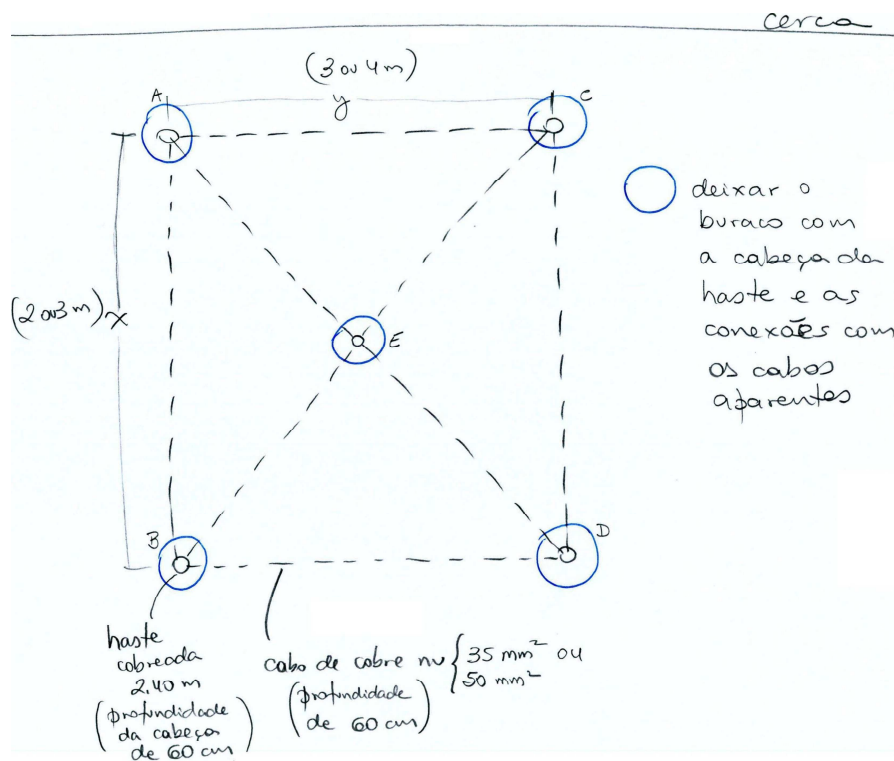 cerca
(3 ou 4 m)
A
y
C
deixar o
buraco com
a cabeça da
haste e as
conexões com
os cabos
aparentes
(2 ou 3 m) x
E
B
D
haste
cobreada
2,40 m
(profundidade
da cabeça
de 60 cm)
cabo de cobre nu { 35 mm² ou
50 mm²
(profundidade
de 60 cm)